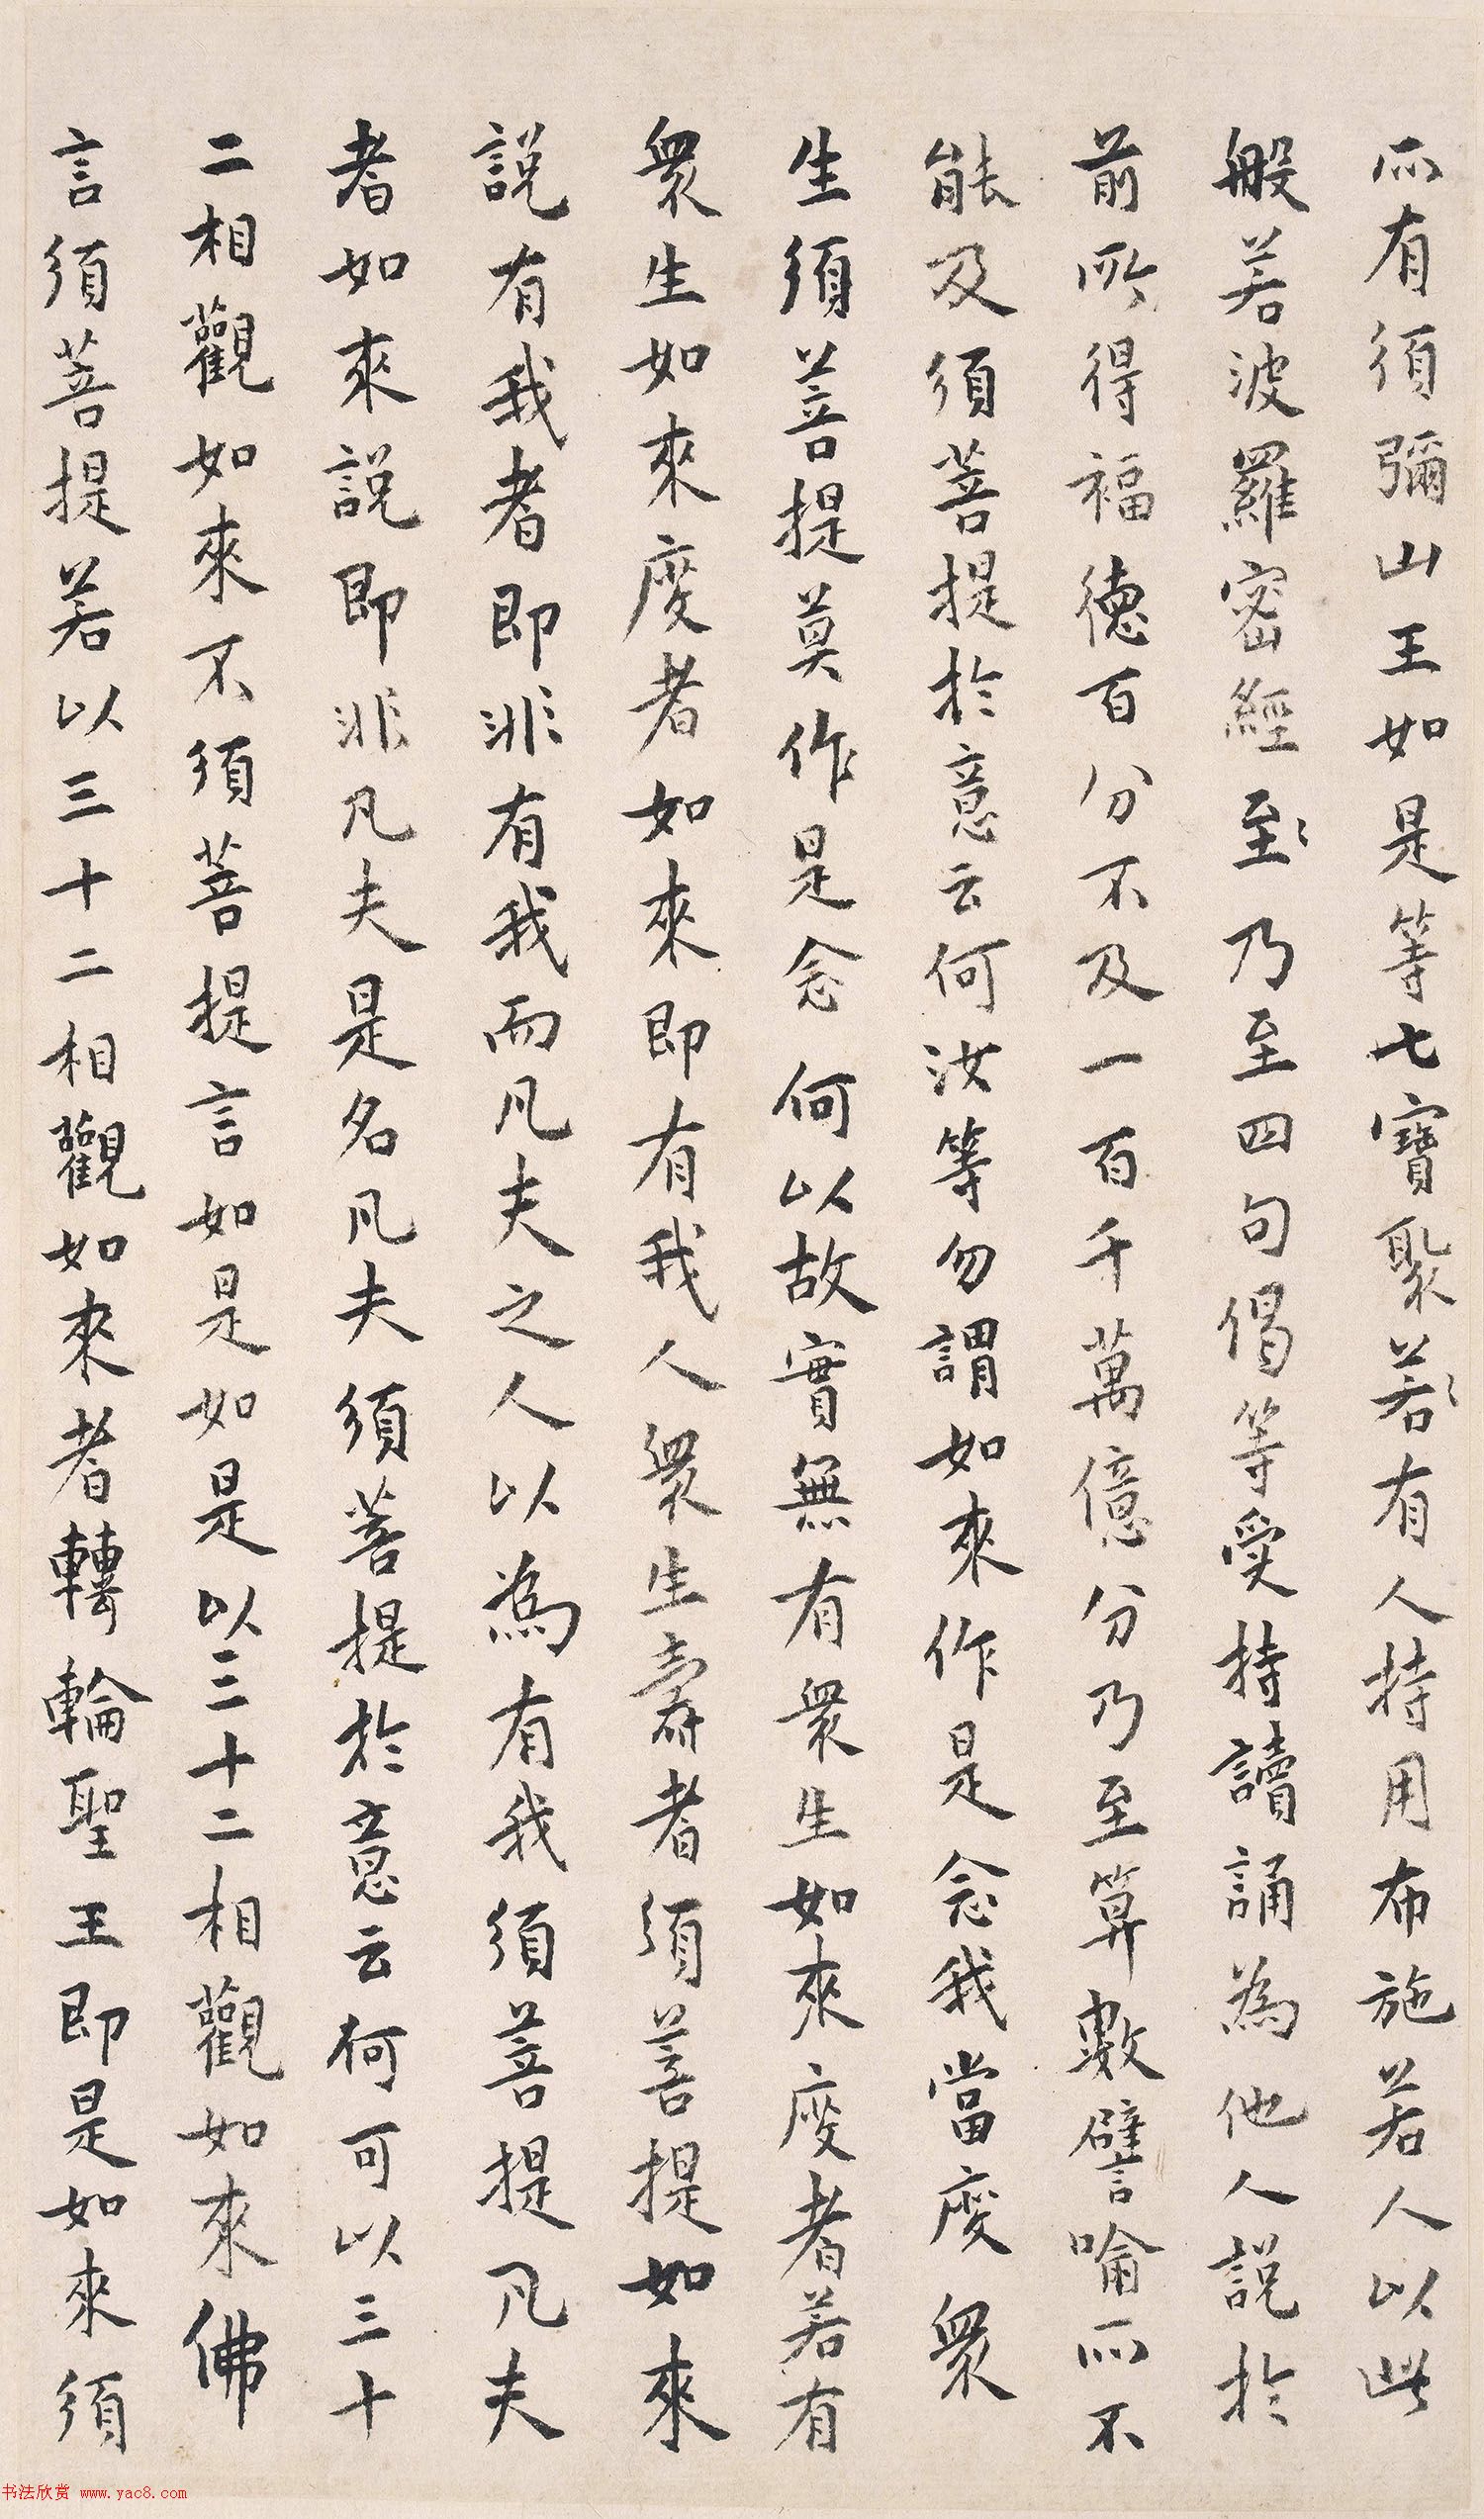 所有須彌山王如是等七寶聚若有人持用布施若人以此
般若波羅密經至乃至四句偈等受持讀誦為他人說於
前所得福德百分不及一百千萬億分乃至算數譬喻所不
能及須菩提於意云何汝等勿謂如來作是念我當度衆
生須菩提莫作是念何以故實無有衆生如來度者若有
衆生如來度者如來即有我人衆生壽者須菩提如來
說有我者即非有我而凡夫之人以為有我須菩提凡夫
者如來說即非凡夫是名凡夫須菩提於意云何可以三十
二相觀如來不須菩提言如是如是以三十二相觀如來佛
言須菩提若以三十二相觀如來者轉輪聖王即是如來須
书法欣赏 www.yac8.com